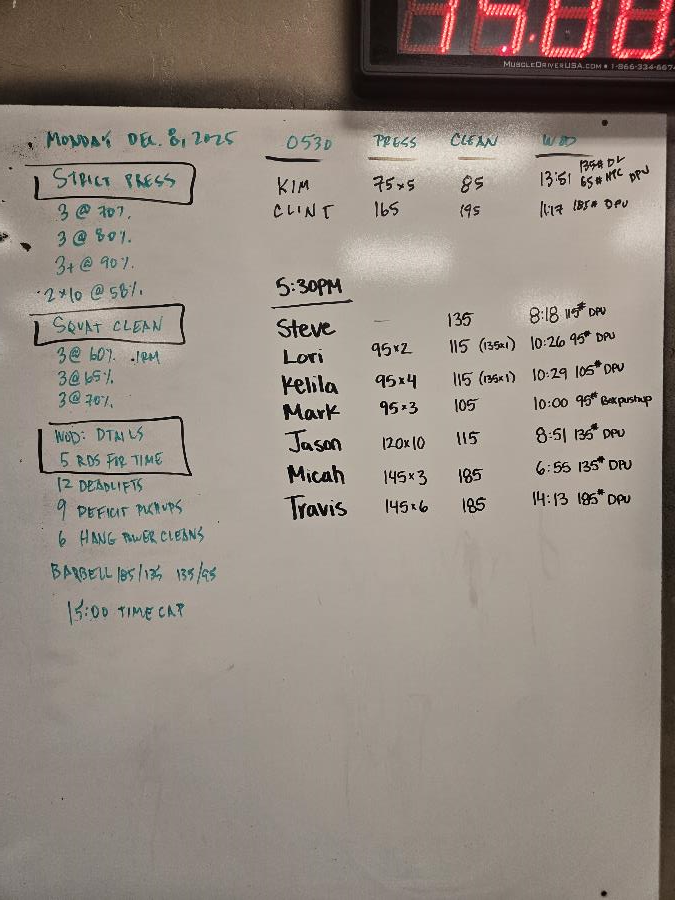 15:00
MUSCLEDRIVERUSA.COM • 1-866-334-667
MONDAY DEC. 8, 2025
STRICT PRESS
3 @ 70%
3 @ 80%
3+ @ 90%
2x10 @ 58%
SQUAT CLEAN
3 @ 60% 1RM
3 @ 65%
3 @ 70%
WOD: DTAILS
5 RDS FOR TIME
12 DEADLIFTS
9 DEFICIT PUSHUPS
6 HANG POWER CLEANS
BARBELL 185/135 135/95
15:00 TIME CAP
0530 PRESS CLEAN WOD
KIM 75x5 85 13:51 135# DL 65# HPC DPU
CLINT 165 195 11:17 185# DPU
5:30PM
Steve — 135 8:18 115# DPU
Lori 95x2 115 (135x1) 10:26 95# DPU
Kelila 95x4 115 (135x1) 10:29 105# DPU
Mark 95x3 105 10:00 95# Box pushup
Jason 120x10 115 8:51 135# DPU
Micah 145x3 185 6:55 135# DPU
Travis 145x6 185 14:13 185# DPU